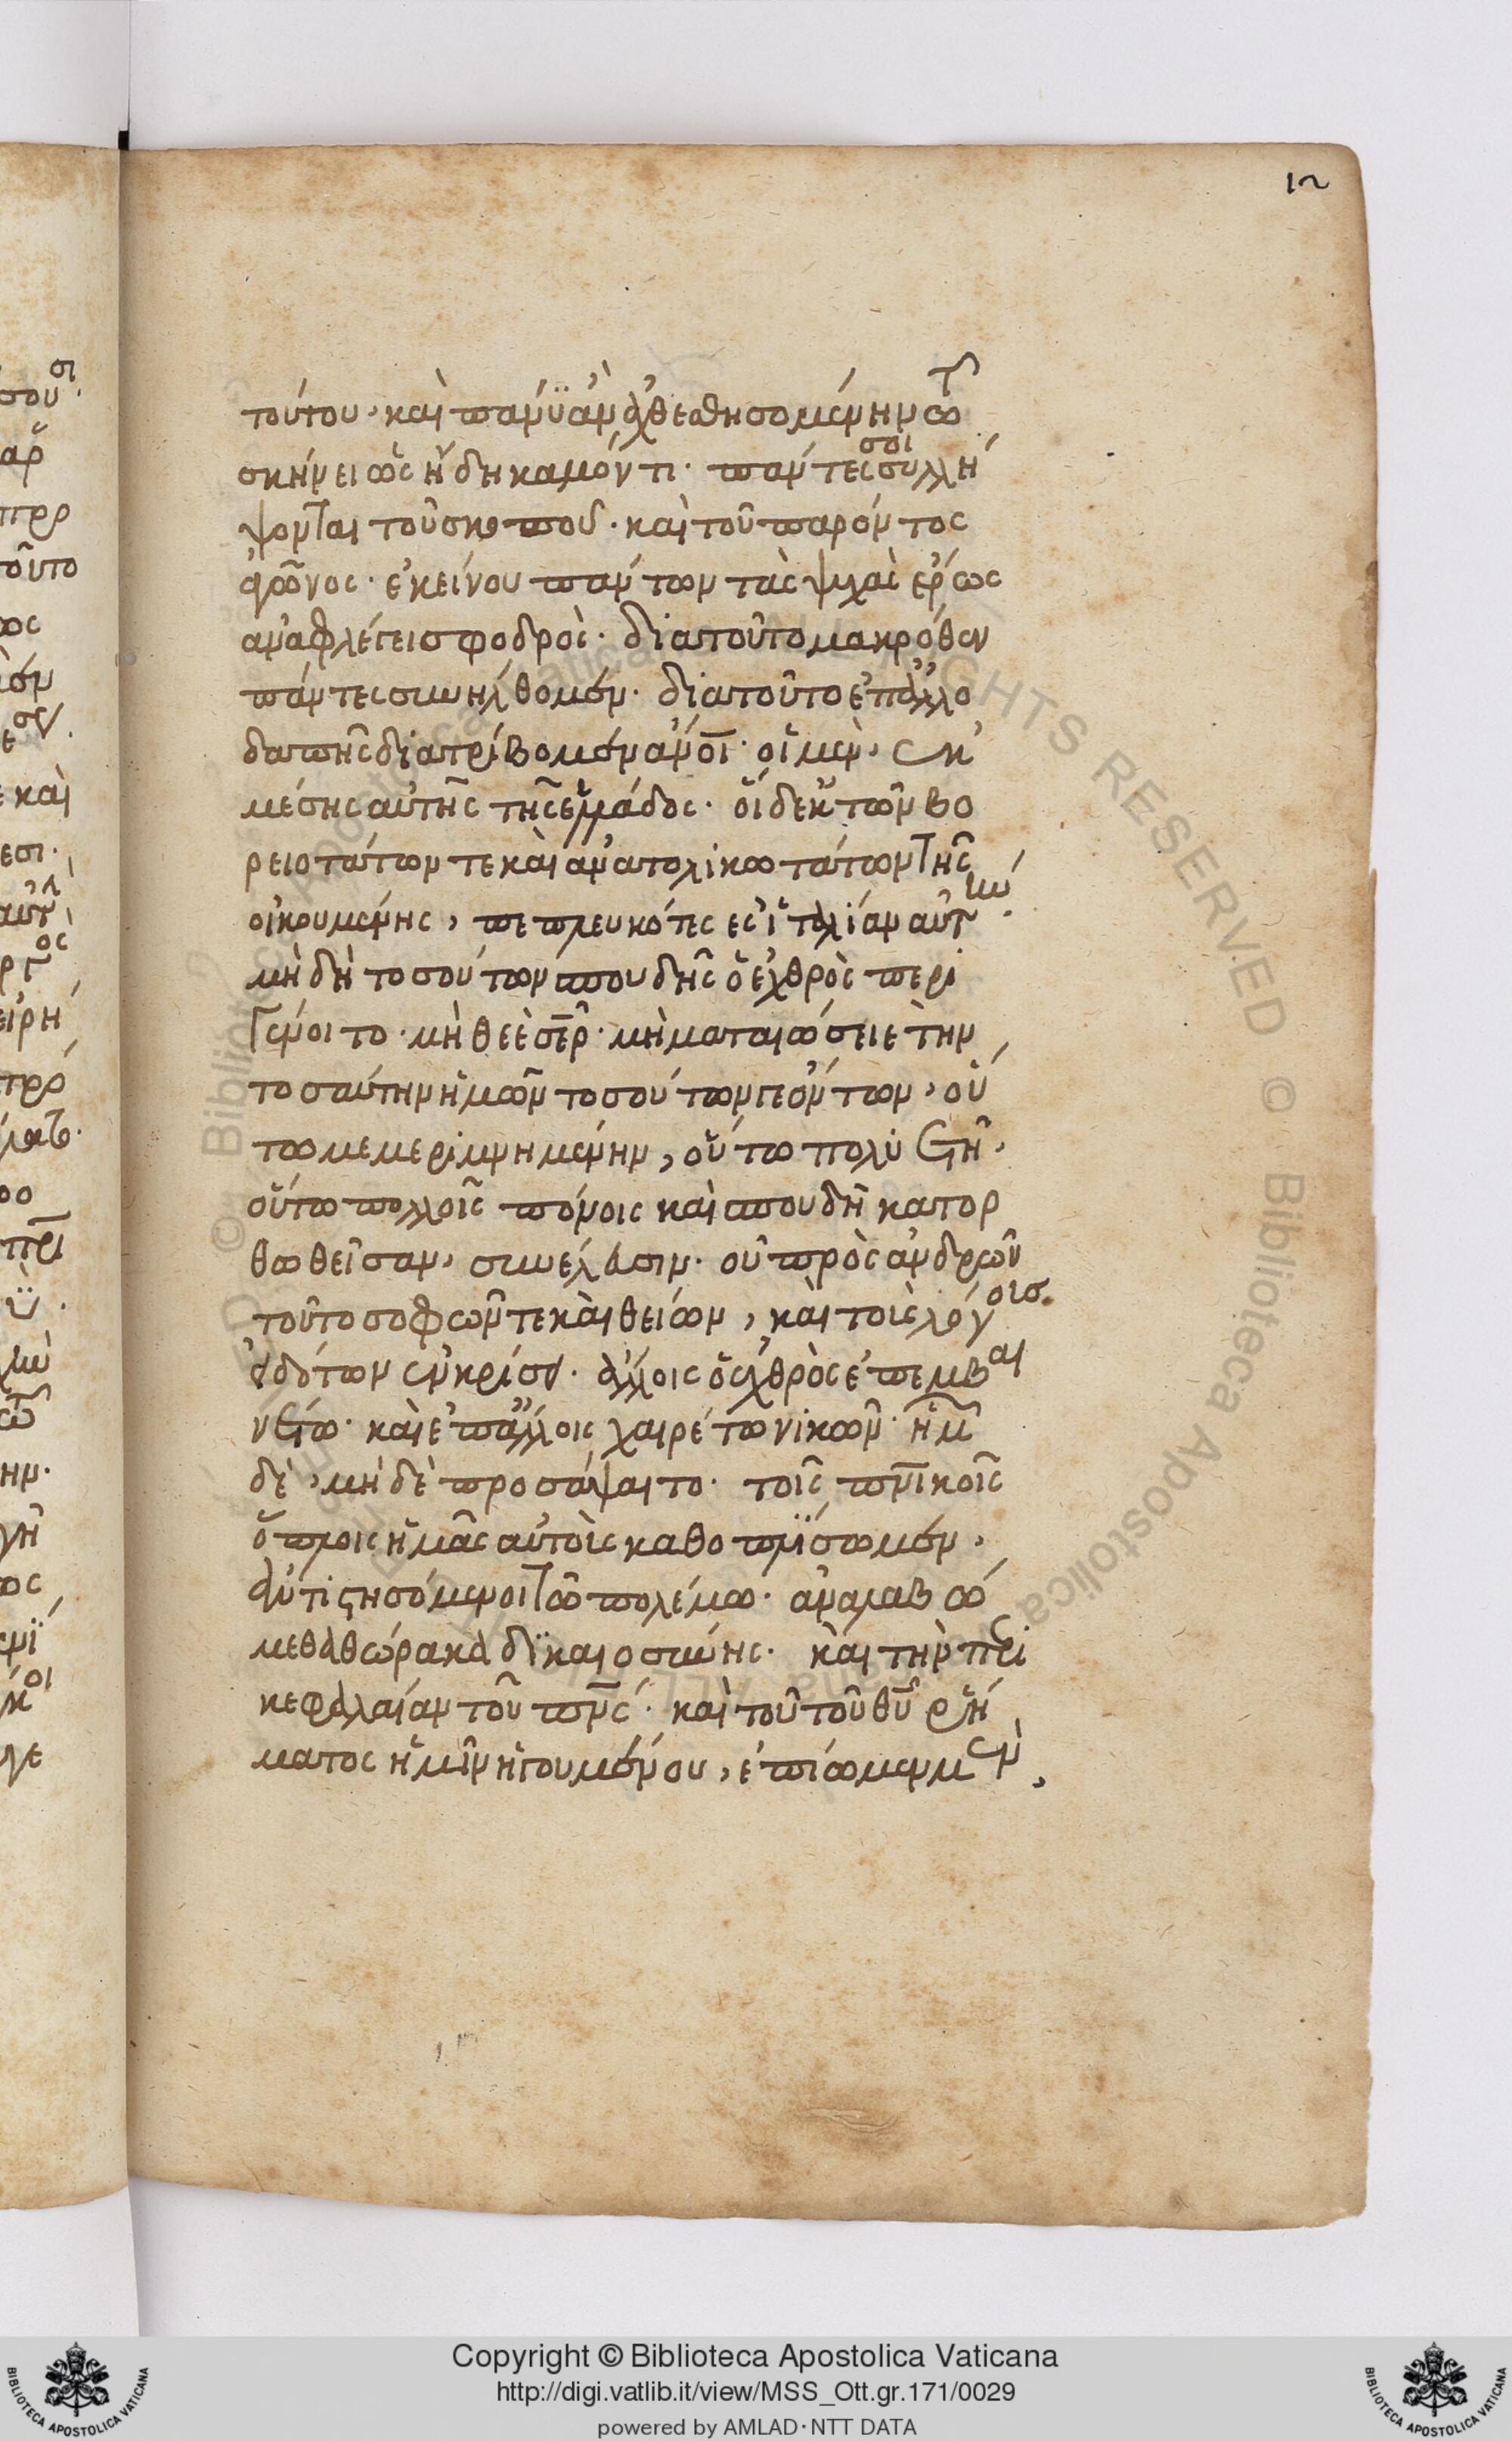 12
τούτου· καὶ πάνυ ἂν ἀχθεσθησομένην τῶ
σκήνει ὡς ἤδη καμόντι· πάντες σοι συλλή
ψονται τοῦ σκοποῦ· καὶ τοῦ παρόντος
ἀγῶνος· ἐκείνου πάντων τὰς ψυχὰς ἔρως
ἀναφλέγει σφοδρός· διατοῦτο μακρόθεν
πάντες συνήλθομεν· διατοῦτο ἐπ' ἀλλο
δαπῆς διατρίβομεν ἄνοι· οἱ μὲν, ἐκ
μέσης αὐτῆς τῆς ἑλλάδος· οἱ δ' ἐκ τῶν βο
ρειοτάτων τε καὶ ἀνατολικωτάτων τῆς
οἰκουμένης, πεπλευκότες ἐς ἰταλίαν αὐτήν·
μὴ δὴ τοσούτων σπουδῆς ὁ ἐχθρὸς περι
γένοιτο· μὴ θεὲ σερ· μὴ ματαιώσειε τὴν
τοσαύτην ἡμῶν τοσούτων γε ὄντων, οὕ
τω μεμεριμνημένην, οὕτω πολυετῆ,
οὕτω πολλοῖς πόνοις καὶ σπουδῆ κατορ
θωθεῖσαν, συνέλευσιν· οὐ πρὸς ἀνδρῶν
τοῦτο σοφῶν τε καὶ θείων, καὶ τοῖς λόγοις
ἁλόντων ἐγκρίσει· ἄλλοις ὁ ἐχθρὸς ἐπεμβαι
νέτω· καὶ ἐπ' ἄλλοις χαιρέτω νικῶν· ἡμῖν
δὲ, μὴ δὲ προσάψαιτο· τοῖς πνικοῖς
ὅπλοις ἡμᾶς αὐτοὺς καθοπλίσωμεν,
ἀντιστησόμενοι τῶ πολέμω· ἀναλαβώ
μεθα θώρακα δικαιοσύνης· καὶ τὴν περι
κεφαλαίαν τοῦ πνς· καὶ τοῦ τοῦ θυ ῥή
ματος ἡμῖν ἡγουμένου, ἐπίωμεν μὲν,
Copyright © Biblioteca Apostolica Vaticana
http://digi.vatlib.it/view/MSS_Ott.gr.171/0029
powered by AMLAD · NTT DATA